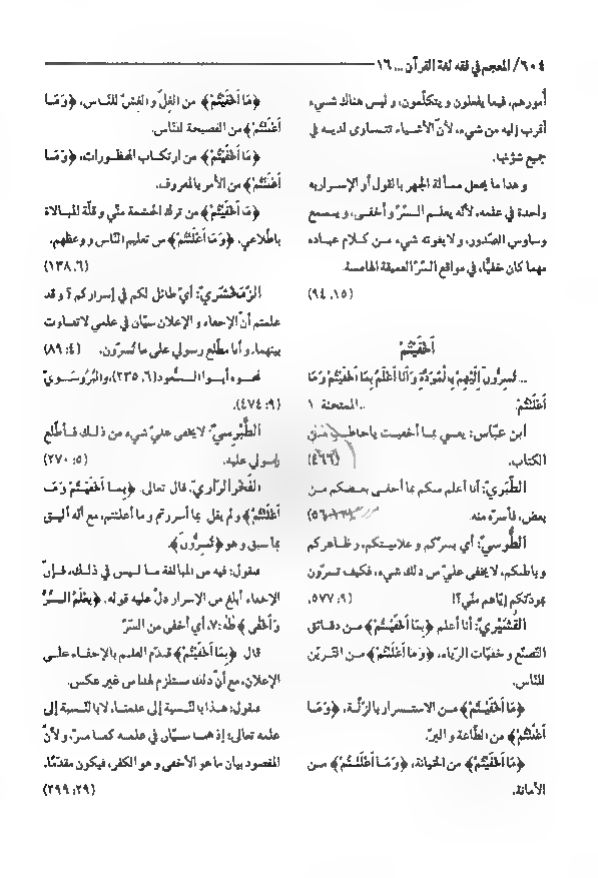 ٦٠٤/ المعجم في فقه لغة القرآن... ١٦
أمورهم، فيما يفعلون و يتكلّمون، و ليس هناك شيء
أقرب إليه من شيء، لأنّ الأشياء تتساوى لديه في
جميع شؤونها.
و هذا ما يجعل مسألة الجهر بالقول أو الإسرار به
واحدة في علمه، لأنّه يعلم السّرّ و أخفى، و يسمع
وساوس الصّدور، و لا يفوته شيء من كلام عباده
مهما كان خفيًّا، في مواقع السّرّ العميقة الهامسة.
(١٥، ٩٤)
أَخْفَيْتُمْ
... تُسِرُّونَ إِلَيْهِمْ بِالْمَوَدَّةِ وَأَنَا أَعْلَمُ بِمَا أَخْفَيْتُمْ وَمَا
أَعْلَنْتُمْ... الممتحنة ١
ابن عبّاس: يعني بما أخفيت يا حاطب من
الكتاب. (٤٦٦)
الطَّبَريّ: أنا أعلم منكم بما أخفى بعضكم من
بعض، فأسرّه منه.
الطُّوسيّ: أي بسرّكم و علانيتكم، و ظاهركم
و باطنكم، لا يخفى عليّ من ذلك شيء، فكيف تسرّون
بمودّتكم إيّاهم منّي؟! (٩: ٥٧٧)
القُشَيْريّ: أنا أعلم ﴿بِمَا أَخْفَيْتُمْ﴾ من دقائق
التّصنّع و خفيّات الرّياء، ﴿وَمَا أَعْلَنْتُمْ﴾ من التّزيّن
للنّاس.
﴿مَا أَخْفَيْتُمْ﴾ من الاستسرار بالزّلّة، ﴿وَمَا
أَعْلَنْتُمْ﴾ من الطّاعة و البرّ.
﴿مَا أَخْفَيْتُمْ﴾ من الخيانة، ﴿وَمَا أَعْلَنْتُمْ﴾ من
الأمانة.
﴿مَا أَخْفَيْتُمْ﴾ من الغِلّ و الغِشّ للنّاس، ﴿وَمَا
أَعْلَنْتُمْ﴾ من الفضيحة للنّاس.
﴿مَا أَخْفَيْتُمْ﴾ من ارتكاب المحظورات، ﴿وَمَا
أَعْلَنْتُمْ﴾ من الأمر بالمعروف.
﴿مَا أَخْفَيْتُمْ﴾ من ترك الحشمة منّي و قلّة المبالاة
باطّلاعي، ﴿وَمَا أَعْلَنْتُمْ﴾ من تعليم النّاس و وعظهم.
(٦، ١٣٨)
الزّمَخْشَريّ: أيّ طائل لكم في إسراركم؟ و قد
علمتم أنّ الإخفاء و الإعلان سيّان في علمي لا تفاوت
بينهما، و أنا مطّلع رسولي على ما تُسرّون. (٤: ٨٩)
نحوه أبو السُّعود (٦، ٢٣٥)، و البُرُوسَويّ
(٩: ٤٧٤).
الطَّبْرِسيّ: لا يخفى عليّ شيء من ذلك فأطّلع
رسولي عليه. (٥: ٢٧٠)
الفَخْر الرّازيّ: قال تعالى: ﴿بِمَا أَخْفَيْتُمْ وَمَا
أَعْلَنْتُمْ﴾ و لم يقل: بما أسررتم و ما أعلنتم، مع أنّه أليق
بما سبق و هو ﴿تُسِرُّونَ﴾.
فنقول: فيه من المبالغة ما ليس في ذلك، فإنّ
الإخفاء أبلغ من الإسرار دلّ عليه قوله: ﴿يَعْلَمُ السِّرَّ
وَأَخْفَى﴾ طٰهٰ: ٧، أي أخفى من السّرّ.
قال: ﴿بِمَا أَخْفَيْتُمْ﴾ قدّم العلم بالإخفاء على
الإعلان، مع أنّ ذلك مستلزم لهذا من غير عكس.
فنقول: هذا بالنّسبة إلى علمنا، لا بالنّسبة إلى
علمه تعالى؛ إذ هما سيّان في علمه كما مرّ، و لأنّ
المقصود بيان ما هو الأخفى و هو الكفر، فيكون مقدّمًا.
(٢٩: ٢٩٩)